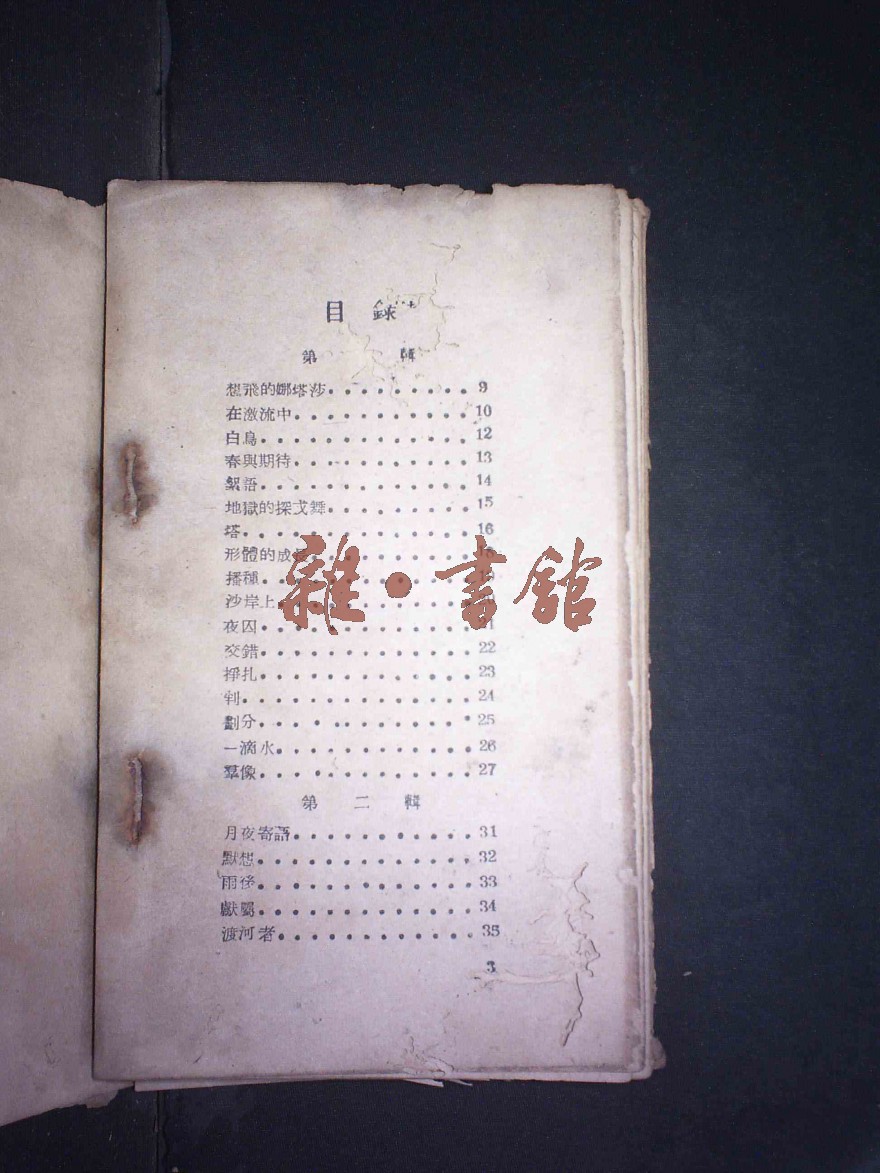 目錄
第 輯
想飛的娜塔莎.........9
在激流中...........10
白鳥.............12
春與期待...........13
絮語.............14
地獄的探戈舞.........15
塔..............16
形體的成長
播種
沙岸上
夜囚
交錯.............22
掙扎.............23
判..............24
劃分.............25
一滴水............26
羣像.............27
雜·書館
第二輯
月夜寄語...........31
默想.............32
雨後.............33
獻........34
渡河者............35
3